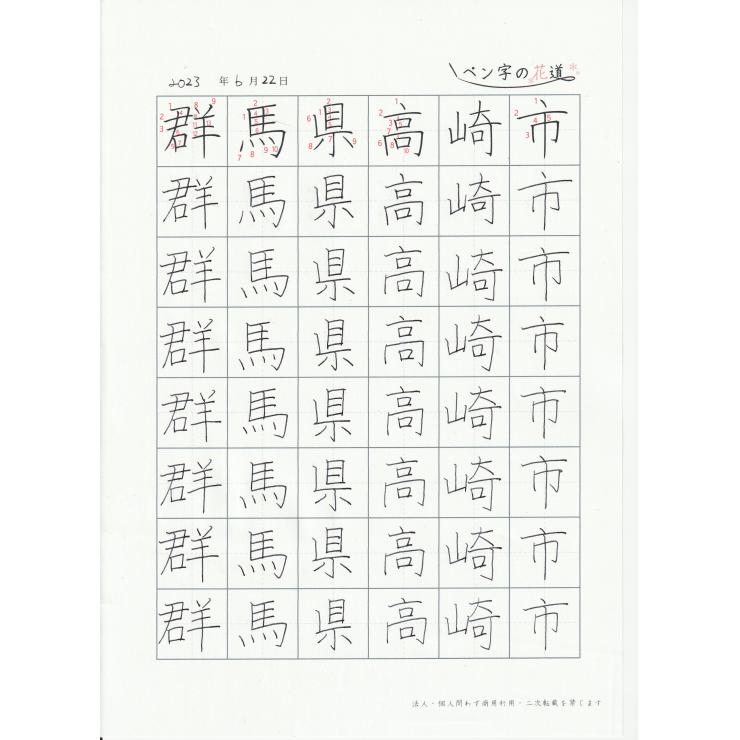 ペン字の花道
2023年6月22日
群馬県高崎市
群馬県高崎市
群馬県高崎市
群馬県高崎市
群馬県高崎市
群馬県高崎市
群馬県高崎市
群馬県高崎市
法人・個人問わず商用利用・二次転載を禁じます